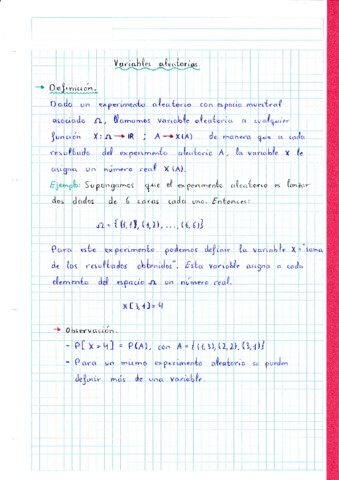 Variables aleatorias
→ Definición.
Dado un experimento aleatorio con espacio muestral
asociado Ω, llamamos variable aleatoria a cualquier
función X: Ω → IR ; A → X(A) de manera que a cada
resultado del experimento aleatorio A, la variable X le
asigna un número real X(A).
Ejemplo: Supongamos que el experimento aleatorio es lanzar
dos dados de 6 caras cada uno. Entonces:
Ω = {(1,1), (1,2), ..., (6,6)}
Para este experimento podemos definir la variable X = "suma
de los resultados obtenidos". Esta variable asigna a cada
elemento del espacio Ω un número real.
X[3,1] = 4
→ Observación.
- P[X=4] = P(A), con A = {(1,3), (2,2), (3,1)}
- Para un mismo experimento aleatorio se pueden
definir más de una variable.